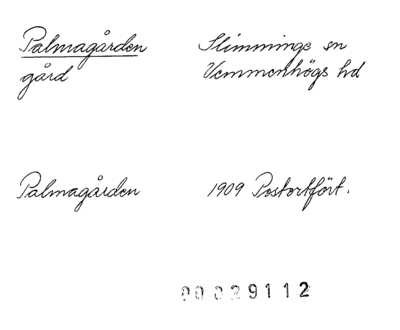 Palmagården Slimminge sn
gård Vemmenhögs hd
Palmagården 1909 Postortfört.
00029112